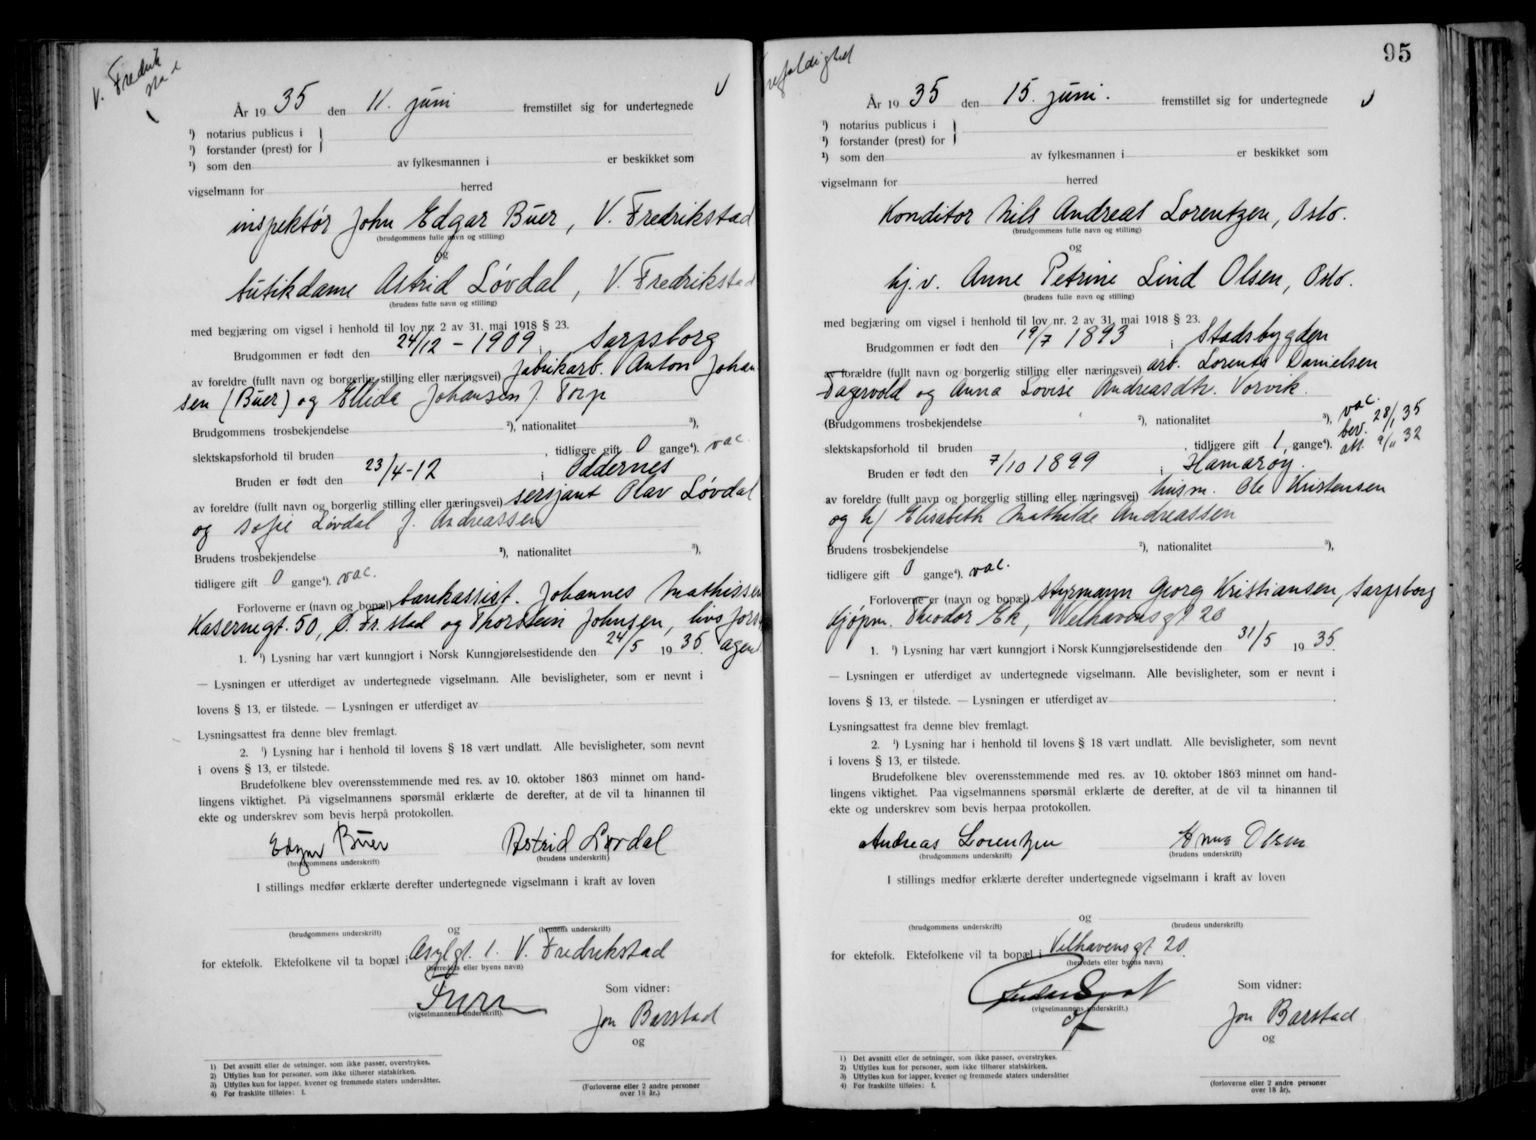 V. Fredrik
stad
År 1935 den 11. juni fremstillet sig for undertegnede
¹) notarius publicus i
¹) forstander (prest) for
¹) som den av fylkesmannen i er beskikket som
vigselmann for herred
inspektør John Edgar Buer, V. Fredrikstad
(brudgommens fulle navn og stilling)
og
butikdame Astrid Løvdal, V. Fredrikstad
(brudens fulle navn og stilling)
med begjæring om vigsel i henhold til lov nr. 2 av 31. mai 1918 § 23.
Brudgommen er født den 24/12 - 1909, i Sarpsborg
av foreldre (fullt navn og borgerlig stilling eller næringsvei) fabrikarb. Anton Johan
sen (Buer) og Ellida Johansen f. Torp
Brudgommens trosbekjendelse ²), nationalitet ³),
slektskapsforhold til bruden , tidligere gift 0 gange⁴). vac.
Bruden er født den 23/4-12 i Oddernes
av foreldre (fullt navn og borgerlig stilling eller næringsvei) sersjant Olav Løvdal
og Sofie Løvdal f. Andreassen
Brudens trosbekjendelse ²), nationalitet ³),
tidligere gift 0 gange⁴). vac.
Forloverne er (navn og bopæl) bankassist. Johannes Mathissen
Kasernegt. 50, Fr.stad og Thorstein Johnsen, livsfors.
agent
1. ¹) Lysning har vært kunngjort i Norsk Kunngjørelsestidende den 24/5 1935.
— Lysningen er utferdiget av undertegnede vigselmann. Alle bevisligheter, som er nevnt i
lovens § 13, er tilstede. — Lysningen er utferdiget av
Lysningsattest fra denne blev fremlagt.
2. ¹) Lysning har i henhold til lovens § 18 vært undlatt. Alle bevisligheter, som nevnt
i ovens § 13, er tilstede.
Brudefolkene blev overensstemmende med res. av 10. oktober 1863 minnet om hand-
lingens viktighet. På vigselmannens spørsmål erklærte de derefter, at de vil ta hinannen til
ekte og underskrev som bevis herpå protokollen.
Edgar Buer Astrid Løvdal
(brudgommens underskrift) (brudens underskrift)
I stillings medfør erklærte derefter undertegnede vigselmann i kraft av loven
og
(brudgommens underskrift) (brudens underskrift)
for ektefolk. Ektefolkene vil ta bopæl i Asylgt. 1. V. Fredrikstad
(herredets eller byens navn)
Som vidner:
(vigselmannens underskrift).
Jon Barstad
og
1) Det avsnitt eller de setninger, som ikke passer, overstrykes.
2) Utfylles kun for personer, som ikke tilhører statskirken.
3) Utfylles kun for lapper, kvener og fremmede staters undersåtter.
4) For fraskilte tilføies: f.
(Forloverne eller 2 andre personer
over 18 år.)
95
År 1935 den 15. juni. fremstillet sig for undertegnede
¹) notarius publicus i
¹) forstander (prest) for
¹) som den av fylkesmannen i er beskikket som
vigselmann for herred
Konditor Nils Andreas Lorentzen, Oslo.
(brudgommens fulle navn og stilling)
og
hj.v. Anne Petrine Lind Olsen, Oslo.
(brudens fulle navn og stilling)
med begjæring om vigsel i henhold til lov nr. 2 av 31. mai 1918 § 23.
Brudgommen er født den 19/7 1893 i Stadsbygden
av forældre (fullt navn og borgerlig stilling eller næringsvei) arb. Lorents Danielsen
Fagervold og Anna Lovise Andreasdtr. Vorvik.
(Brudgommens trosbekjendelse ²), nationalitet ³), vac.
bev. 28/1 35
slektskapsforhold til bruden , tidligere gift 1 gange⁴). att. 9/11 32
Bruden er født den 7/10 1899 i Hamarøy.
av foreldre (fullt navn og borgerlig stilling eller næringsvei) husm. Ole Kristensen
og h/ Elisabeth Mathilde Andreassen
Brudens trosbekjendelse ²), nationalitet ³),
tidligere gift 0 gange⁴). vac.
Forloverne er (navn og bopæl) styrmann Georg Kristiansen, Sarpsborg
kjøpm. Theodor Ek, Welhavensgt 20
1. ¹) Lysning har vært kunngjort i Norsk Kunngjørelsestidende den 31/5 1935.
— Lysningen er utferdiget av undertegnede vigselmann. Alle bevisligheter, som er nevnt i
lovens § 13, er tilstede. — Lysningen er utferdiget av
Lysningsattest fra denne blev fremlagt.
2. ¹) Lysning har i henhold til lovens § 18 vært undlatt. Alle bevisligheter, som nevnt
i lovens § 13, er tilstede.
Brudefolkene blev overensstemmende med res. av 10. oktober 1863 minnet om hand-
lingens viktighet. Paa vigselmannens spørsmål erklærte de derefter, at de vil ta hinannen til
ekte og underskrev som bevis herpaa protokollen.
Andreas Lorentzen Anna Olsen
(brudgommens underskrift) (brudens underskrift)
I stillings medfør erklærte derefter undertegnede vigselmann i kraft av loven
og
(brudgommens underskrift) (brudens underskrift)
for ektefolk. Ektefolkene vil ta bopæl i Velhavensgt 20.
(herredets eller byens navn)
Som vidner:
(vigselmannens underskrift.)
Jon Barstad
og
1) Det avsnitt eller de setninger, som ikke passer, overstrykes.
2) Utfylles kun for personer, som ikke tilhører statskirken.
3) Utfylles kun for lapper, kvener og fremmede staters undersåtter
4) For fraskilte tilføies: f.
(forloverne eller 2 andre personer
over 18 år).